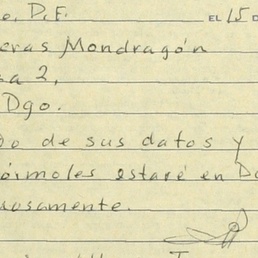 o, D.F. EL 15 D
eras Mondragón
a 2,
Dgo.
do de sus datos y
estaré en Do
uosamente.